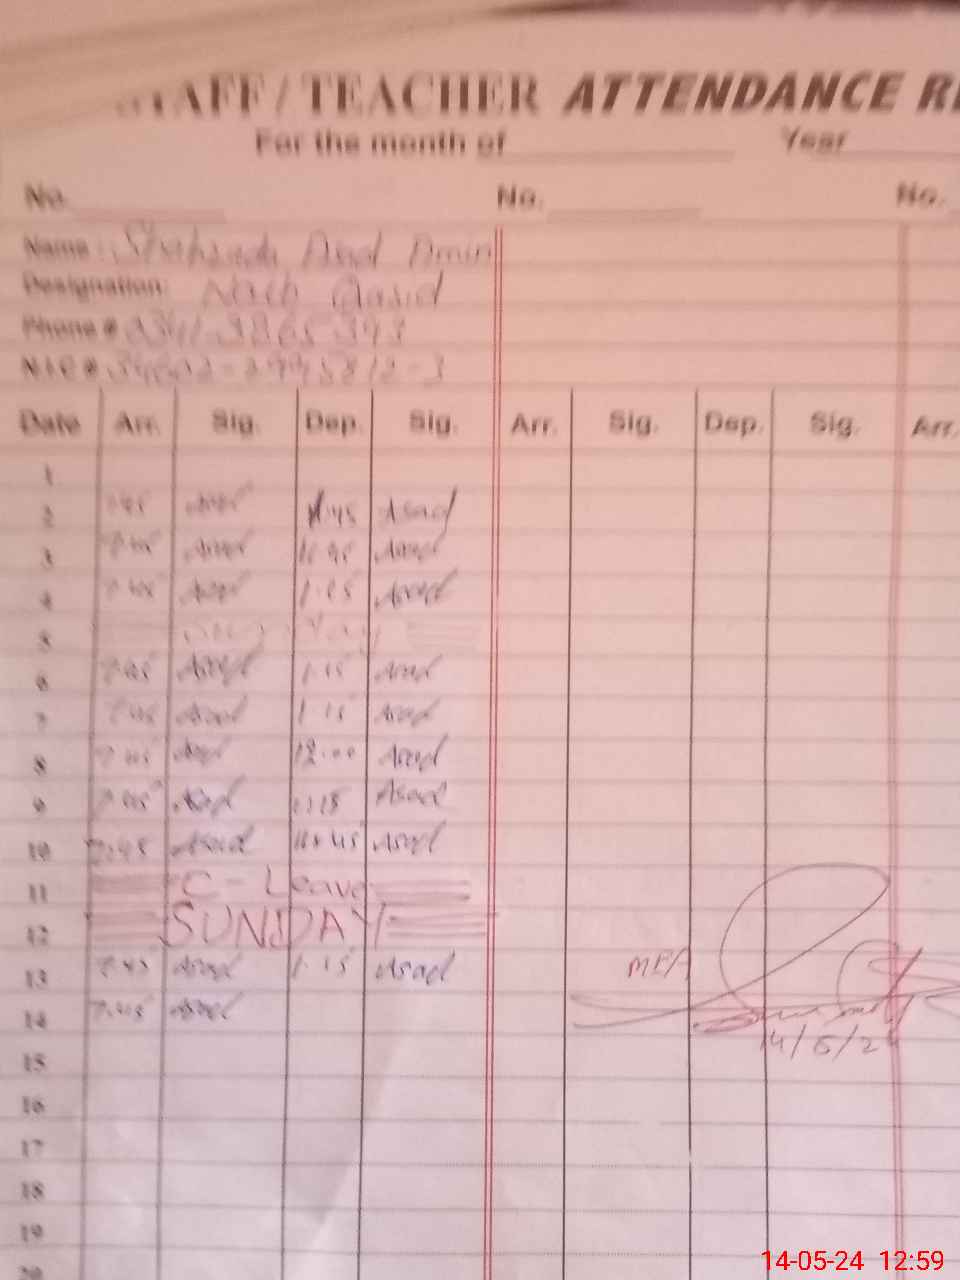 STAFF / TEACHER ATTENDANCE RE
For the month of Year
No. No. No.
Name: Asad Amin
Designation: Naib Qasid
Phone #
N.I.C #
Date Arr. Sig. Dep. Sig. Arr. Sig. Dep. Sig. Arr.
1
2 7:45 Asad 45 Asad
3 7:45 Asad 11:45 Asad
4 7:45 Asad 1:15 Asad
5
6 7:45 Asad 1:15 Asad
7 7:45 Asad 1:15 Asad
8 7:45 Asad 12:00 Asad
9 7:45 Asad 1:15 Asad
10 7:45 Asad 11:45 Asad
11 C - Leave
12 SUNDAY
13 7:45 Asad 1:15 Asad MEA
14 7:45 Asad
14/5/24
15
16
17
18
19
20
14-05-24 12:59